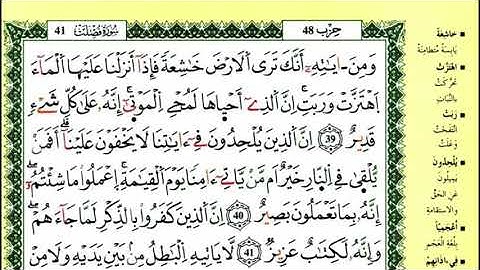 حِزْب 48
سُورَةُ فُصِّلَتْ 41
وَمِنَ ايَٰتِهِۦٓ أَنَّكَ تَرَى ٱلَارْضَ خَٰشِعَةً فَإِذَآ أَنزَلْنَا عَلَيْهَا ٱلْمَآءَ
ٱهْتَزَّتْ وَرَبَتِ انَّ ٱلَّذِےٓ أَحْيَاهَا لَمُحْيِ ٱلْمَوْتَىٰٓ إِنَّهُۥ عَلَىٰ كُلِّ شَےْءٍ
قَدِيرٌ 39 إِنَّ ٱلَّذِينَ يُلْحِدُونَ فِےٓ ءَايَٰتِنَا لَا يَخْفَوْنَ عَلَيْنَآ أَفَمَنْ
يُّلْقَىٰ فِى ٱلنَّارِ خَيْرٌ اَم مَّنْ يَّاتِےٓ ءَامِنًا يَوْمَ ٱلْقِيَٰمَةِ ٱعْمَلُوا۟ مَا شِئْتُمُۥٓ
إِنَّهُۥ بِمَا تَعْمَلُونَ بَصِيرٌ 40 إِنَّ ٱلَّذِينَ كَفَرُوا۟ بِالذِّكْرِ لَمَّا جَآءَهُمْ
وَإِنَّهُۥ لَكِتَٰبٌ عَزِيزٌ 41 لَّا يَاتِيهِ ٱلْبَٰطِلُ مِنۢ بَيْنِ يَدَيْهِ وَلَا مِنْ
خَاشِعَةً
يَابِسَةً مُتَطَامِنَةً
اهْتَزَّتْ
تَحَرَّكَتْ
بِالنَّبَاتِ
رَبَتْ
انْتَفَخَتْ
وَعَلَتْ
يُلْحِدُونَ
يَمِيلُونَ
عَنِ الحَقِّ
وَالاسْتِقَامَةِ
أَعْجَمِيًّا
بِلُغَةِ العَجَمِ
فِي آذَانِهِمْ